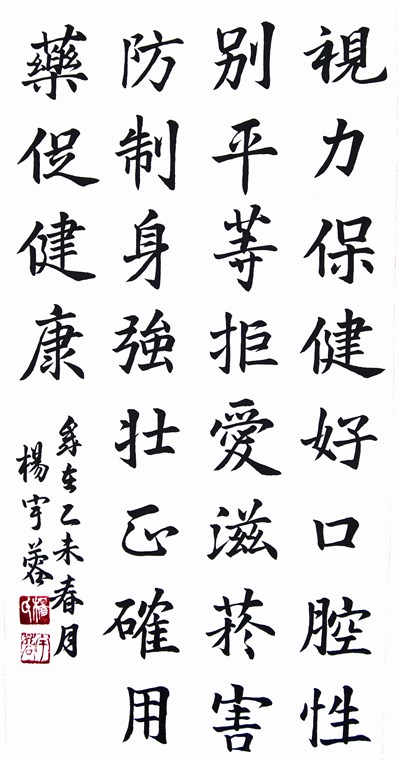 視力保健好口腔性
別平等拒愛滋菸害
防制身強壯正確用
藥促健康
歲在乙未春月
楊宇蓉